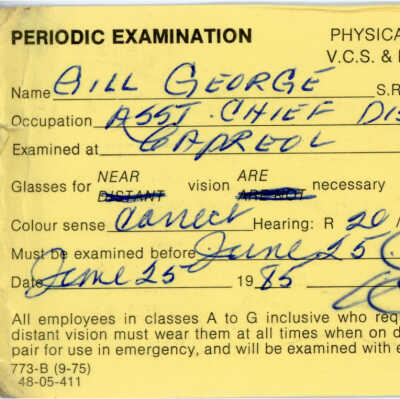 PERIODIC EXAMINATION PHYSICA
V.C.S. &
Name GILL GEORGE S.R
Occupation ASST. CHIEF DIS
Examined at CAPREOL
Glasses for NEAR DISTANT vision ARE ARE NOT necessary
Colour sense Correct Hearing: R 20/
Must be examined before June 25
Date June 25 1985
All employees in classes A to G inclusive who req
distant vision must wear them at all times when on d
pair for use in emergency, and will be examined with e
773-B (9-75)
48-05-411